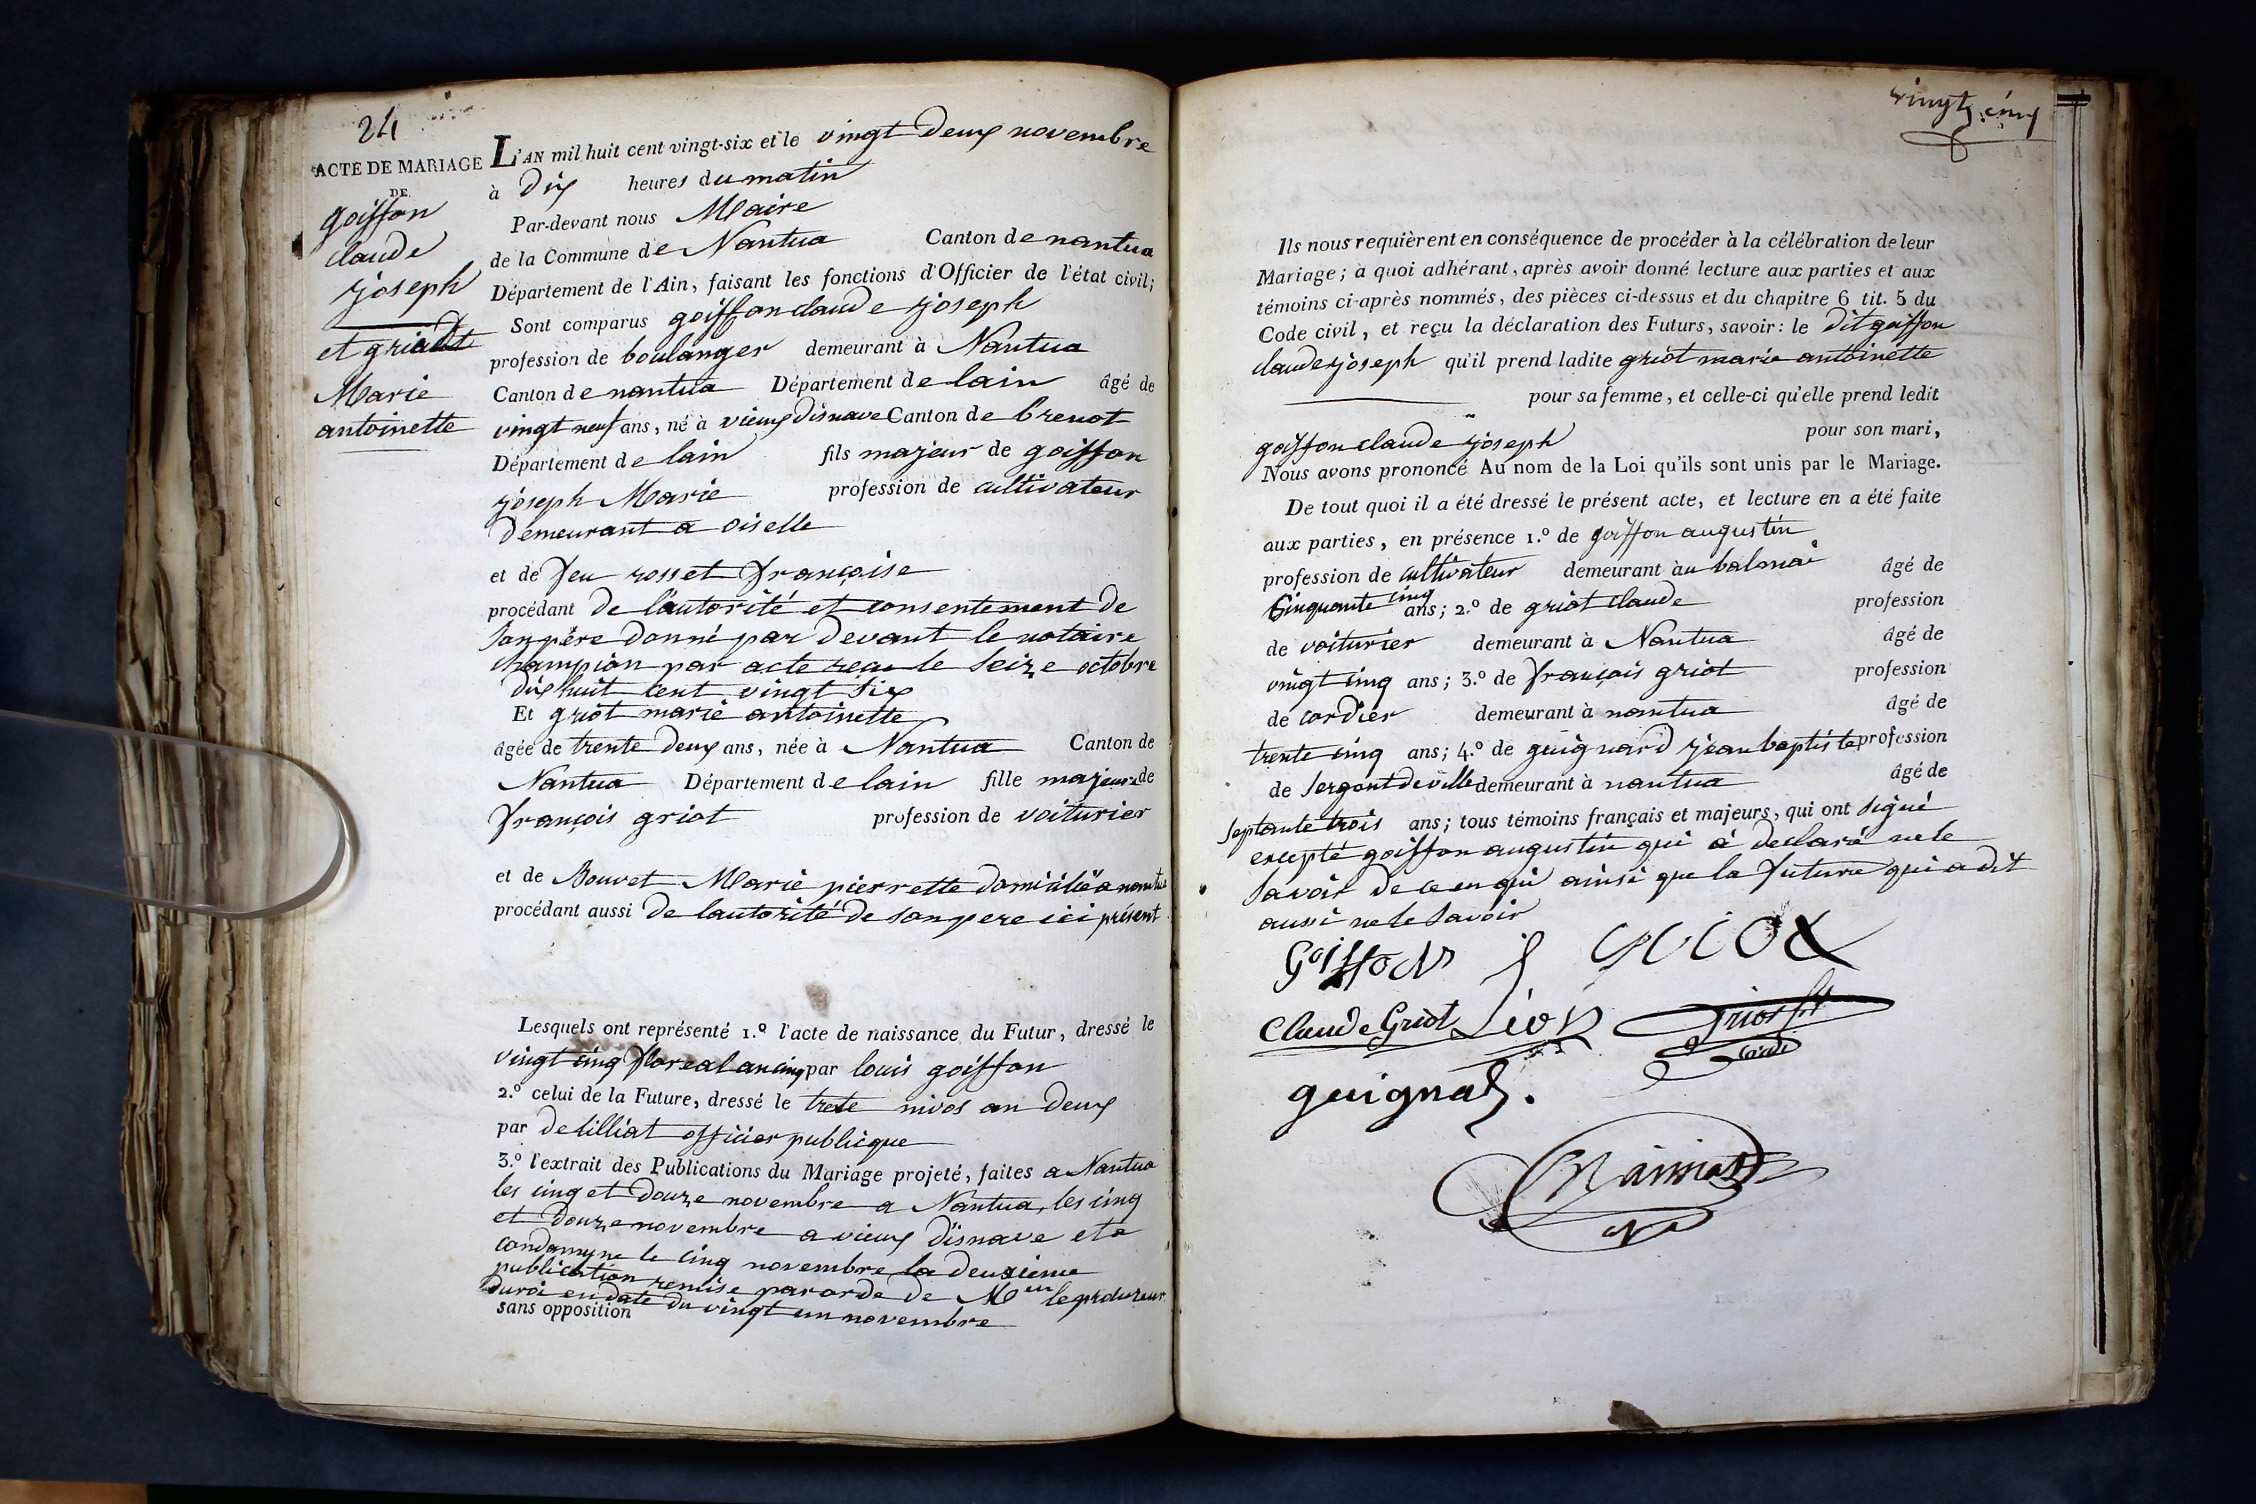 24
ACTE DE MARIAGE
DE
goiffon
claude
joseph
et griot
Marie
antoinette
L'AN mil huit cent vingt-six et le vingt deux novembre
à dix heures du matin
Par-devant nous Maire
de la Commune de Nantua Canton de nantua
Département de l'Ain, faisant les fonctions d'Officier de l'état civil;
Sont comparus goiffon claude joseph
profession de boulanger demeurant à Nantua
Canton de nantua Département de lain âgé de
vingt neuf ans, né à vieux disnave Canton de brenot
Département de lain fils majeur de goiffon
joseph Marie profession de cultivateur
demeurant a oiselle
et de feu rosset françoise
procédant de l'autorité et consentement de
son père donné par devant le notaire
champion par acte reçu le seize octobre
dix huit cent vingt six
Et griot marie antoinette
âgée de trente deux ans, née à Nantua Canton de
Nantua Département de lain fille majeure de
françois griot profession de voiturier
et de Bouvet Marie pierrette domiciliée a nantua
procédant aussi de lautorité de son pere ici présent
Lesquels ont représenté 1.º l'acte de naissance du Futur, dressé le
vingt cinq floreal an cinq par louis goiffon
2.º celui de la Future, dressé le trete nivos an deux
par delilliat officier publicque
3.º l'extrait des Publications du Mariage projeté, faites a Nantua
les cinq et douze novembre a Nantua, les cinq
et douze novembre a vieux disnave et a
condamyne le cinq novembre la deuxieme
publication remise par orde de M le procureur
du roi en date du vingt un novembre
sans opposition
vingt cinq
Ils nous requièrent en conséquence de procéder à la célébration de leur
Mariage; à quoi adhérant, après avoir donné lecture aux parties et aux
témoins ci-après nommés, des pièces ci-dessus et du chapitre 6 tit. 5 du
Code civil, et reçu la déclaration des Futurs, savoir: le dit goiffon
claude joseph qu'il prend ladite griot marie antoinette
pour sa femme, et celle-ci qu'elle prend ledit
goiffon claude joseph pour son mari,
Nous avons prononcé Au nom de la Loi qu'ils sont unis par le Mariage.
De tout quoi il a été dressé le présent acte, et lecture en a été faite
aux parties, en présence 1.º de goiffon augustin
profession de cultivateur demeurant à au balmai âgé de
Cinquante cinq ans; 2.º de griot claude profession
de voiturier demeurant à Nantua âgé de
vingt cinq ans; 3.º de françois griot profession
de cordier demeurant à nantua âgé de
trente cinq ans; 4.º de guignard jean baptiste profession
de sergont de ville demeurant à nantua âgé de
septante trois ans; tous témoins français et majeurs, qui ont signé
excepté goiffon augustin qui à declaré ne le
savoir de ce enqui ainsi que la future qui a dit
aussi ne le savoir
Goiffon
griot
Claude Griot
Griot
guignard